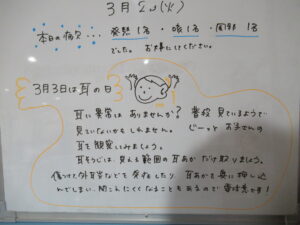 3月2日(火)
本日の病欠・・・ 発熱1名 ・ 咳1名 ・ 1名
でした。 お大事にしてください。
3月3日は耳の日
耳に異常はありませんか? 普段見ているようで
見ていないかもしれません。 じーっと お子さんの
耳を観察してみましょう。
耳そうじは、見える範囲の耳あかだけ取りましょう。
傷つけて外耳炎などを発症したり 耳あかを奥に押し込
んでしまい、聞こえにくくなることもあるので 要注意です!